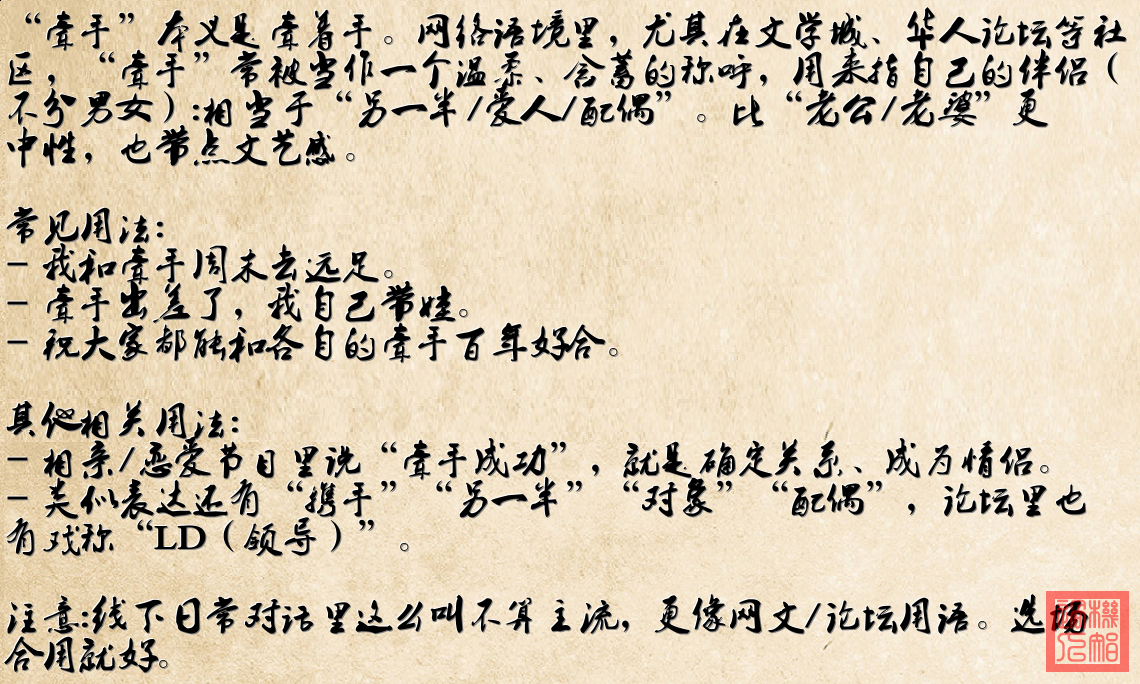 “牵手”本义是牵着手。网络语境里，尤其在文学城、华人论坛等社
区，“牵手”常被当作一个温柔、含蓄的称呼，用来指自己的伴侣（
不分男女）：相当于“另一半/爱人/配偶”。比“老公/老婆”更
中性，也带点文艺感。
常见用法：
- 我和牵手周末去远足。
- 牵手出差了，我自己带娃。
- 祝大家都能和各自的牵手百年好合。
其他相关用法：
- 相亲/恋爱节目里说“牵手成功”，就是确定关系、成为情侣。
- 类似表达还有“携手”“另一半”“对象”“配偶”，论坛里也
有戏称“LD（领导）”。
注意：线下日常对话里这么叫不算主流，更像网文/论坛用语。选场
合用就好。